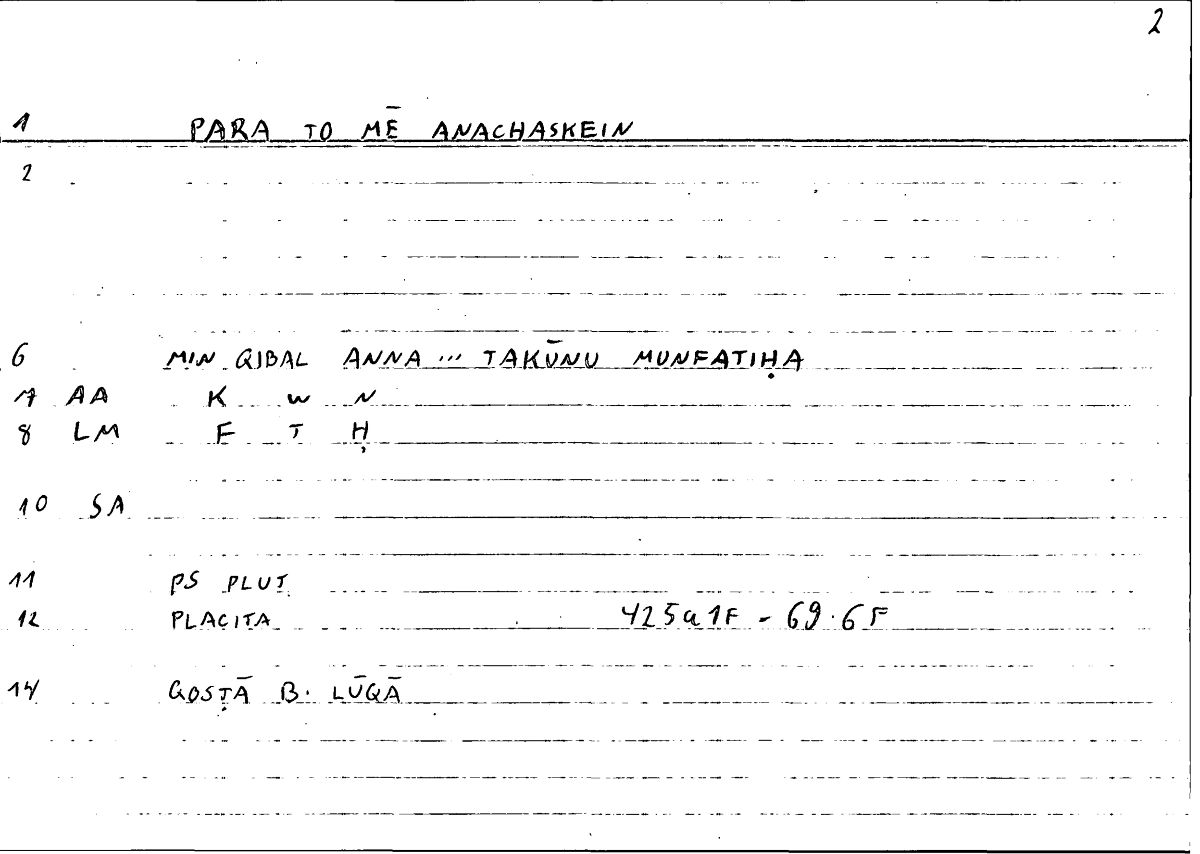 2
1 PARA TO MĒ ANACHASKEIN
2
6 MIN QIBAL ANNA ... TAKŪNU MUNFATIḤA
7 AA K W N
8 LM F T Ḥ
10 SA
11 PS PLUT
12 PLACITA 425a1F - 69.6F
14 QOSṬĀ B. LŪQĀ